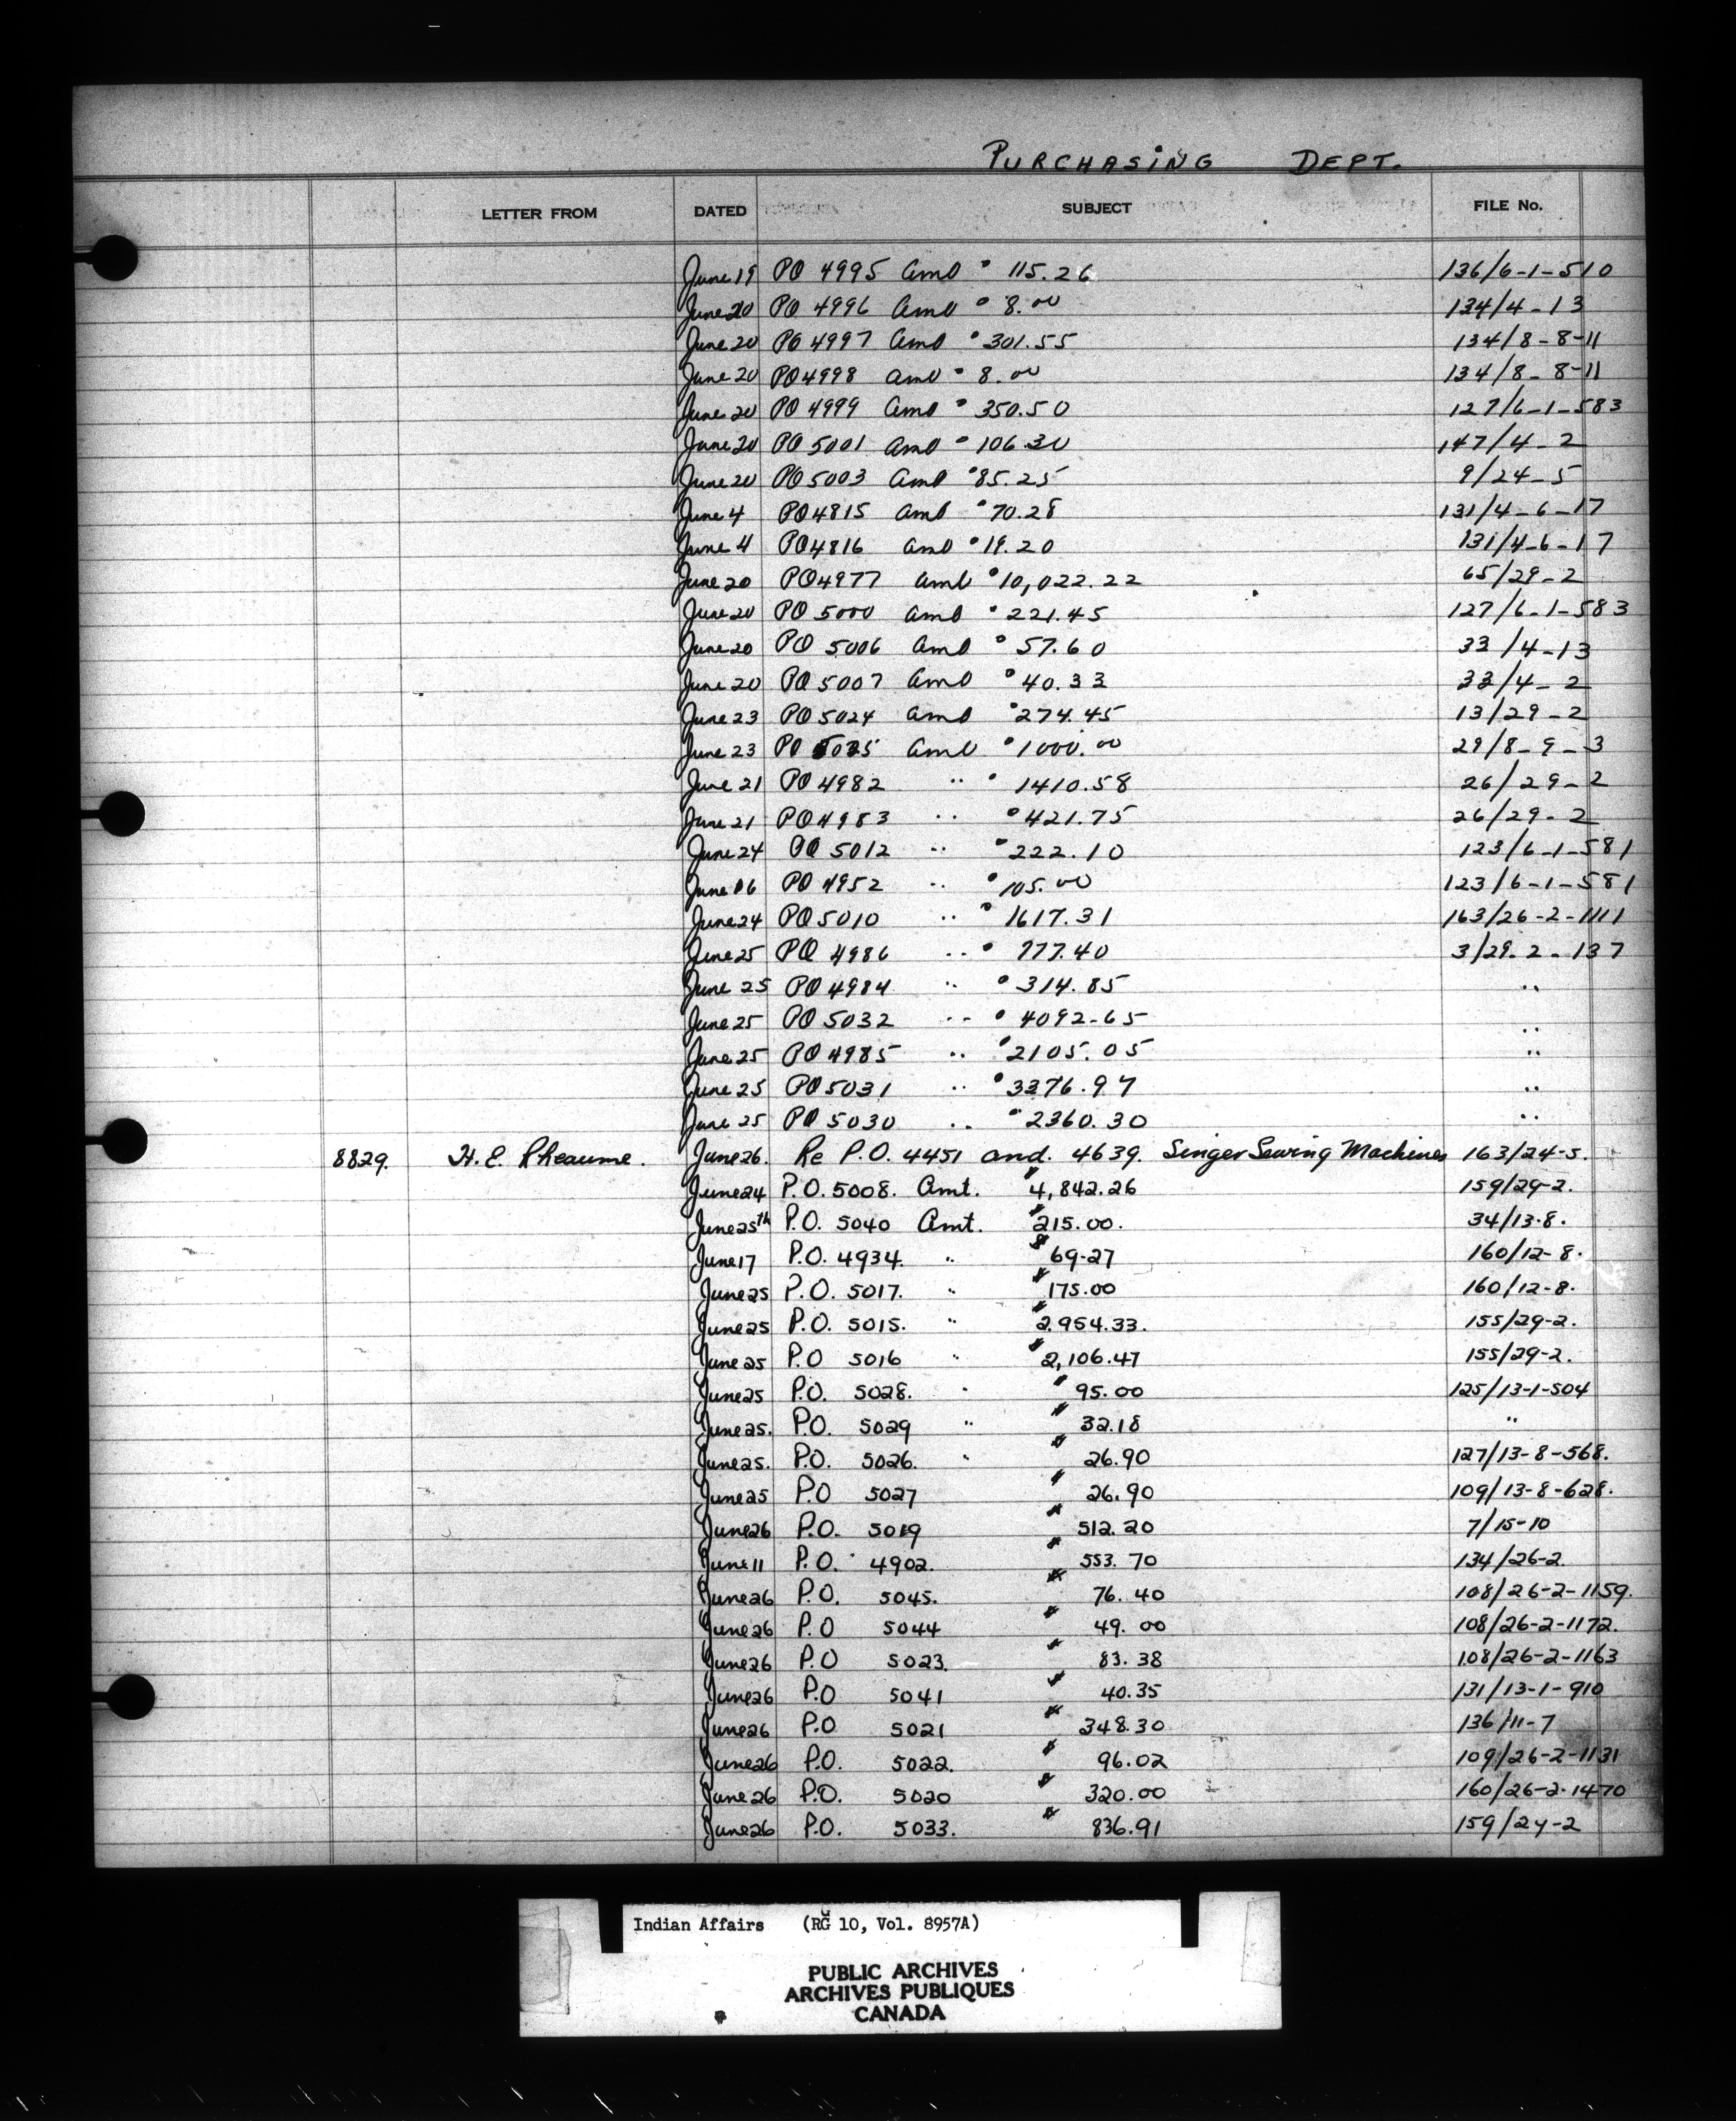 PURCHASING DEPT.
LETTER FROM DATED SUBJECT FILE No.
June 19 PO 4995 Amt $ 115.26 136/6-1-510
June 20 PO 4996 Amt $ 8.00 134/4-13
June 20 PO 4997 Amt $ 301.55 134/8-8-11
June 20 PO 4998 Amt $ 8.00 134/8-8-11
June 20 PO 4999 Amt $ 350.50 127/6-1-583
June 20 PO 5001 Amt $ 106.30 147/4-2
June 20 PO 5003 Amt $ 85.25 9/24-5
June 4 PO 4815 Amt $ 70.28 131/4-6-17
June 4 PO 4816 Amt $ 19.20 131/4-6-17
June 20 PO 4977 Amt $ 10,022.22 65/29-2
June 20 PO 5000 Amt $ 221.45 127/6-1-583
June 20 PO 5006 Amt $ 57.60 33/4-13
June 20 PO 5007 Amt $ 40.33 33/4-2
June 23 PO 5024 Amt $ 274.45 13/29-2
June 23 PO 5025 Amt $ 1000.00 29/8-9-3
June 21 PO 4982 " $ 1410.58 26/29-2
June 21 PO 4983 " $ 421.75 26/29-2
June 24 PO 5012 " $ 222.10 123/6-1-581
June 16 PO 4952 " $ 105.00 123/6-1-581
June 24 PO 5010 " $ 1617.31 163/26-2-1111
June 25 PO 4986 " $ 777.40 3/29-2-137
June 25 PO 4984 " $ 314.85 "
June 25 PO 5032 " $ 4092.65 "
June 25 PO 4985 " $ 2105.05 "
June 25 PO 5031 " $ 3376.97 "
June 25 PO 5030 " $ 2360.30 "
8829. H. E. Rheaume. June 26. Re P.O. 4451 and. 4639. Singer Sewing Machines 163/24-5.
June 24 P.O. 5008. Amt. $ 4,842.26 159/29-2.
June 25th P.O. 5040 Amt. $ 215.00. 34/13-8.
June 17 P.O. 4934. " $ 69-27 160/12-8.
June 25 P.O. 5017. " $ 175.00 160/12-8.
June 25 P.O. 5015. " $ 2.954.33. 155/29-2.
June 25 P.O 5016 " $ 2,106.47 155/29-2.
June 25 P.O. 5028. " $ 95.00 125/13-1-504
June 25. P.O. 5029 " $ 32.18 "
June 25. P.O. 5026. " $ 26.90 127/13-8-568.
June 25 P.O 5027 $ 26.90 109/13-8-628.
June 26 P.O. 5019 $ 512.20 7/15-10
June 11 P.O. 4902. $ 553.70 134/26-2
June 26 P.O. 5045. $ 76.40 108/26-2-1159.
June 26 P.O 5044 $ 49.00 108/26-2-1172.
June 26 P.O 5023. $ 83.38 108/26-2-1163
June 26 P.O 5041 $ 40.35 131/13-1-910
June 26 P.O 5021 $ 348.30 136/11-7
June 26 P.O. 5022. $ 96.02 109/26-2-1131
June 26 P.O. 5020 $ 320.00 160/26-2-1470
June 26 P.O. 5033. $ 836.91 159/24-2
Indian Affairs (RG 10, Vol. 8957A)
PUBLIC ARCHIVES
ARCHIVES PUBLIQUES
CANADA